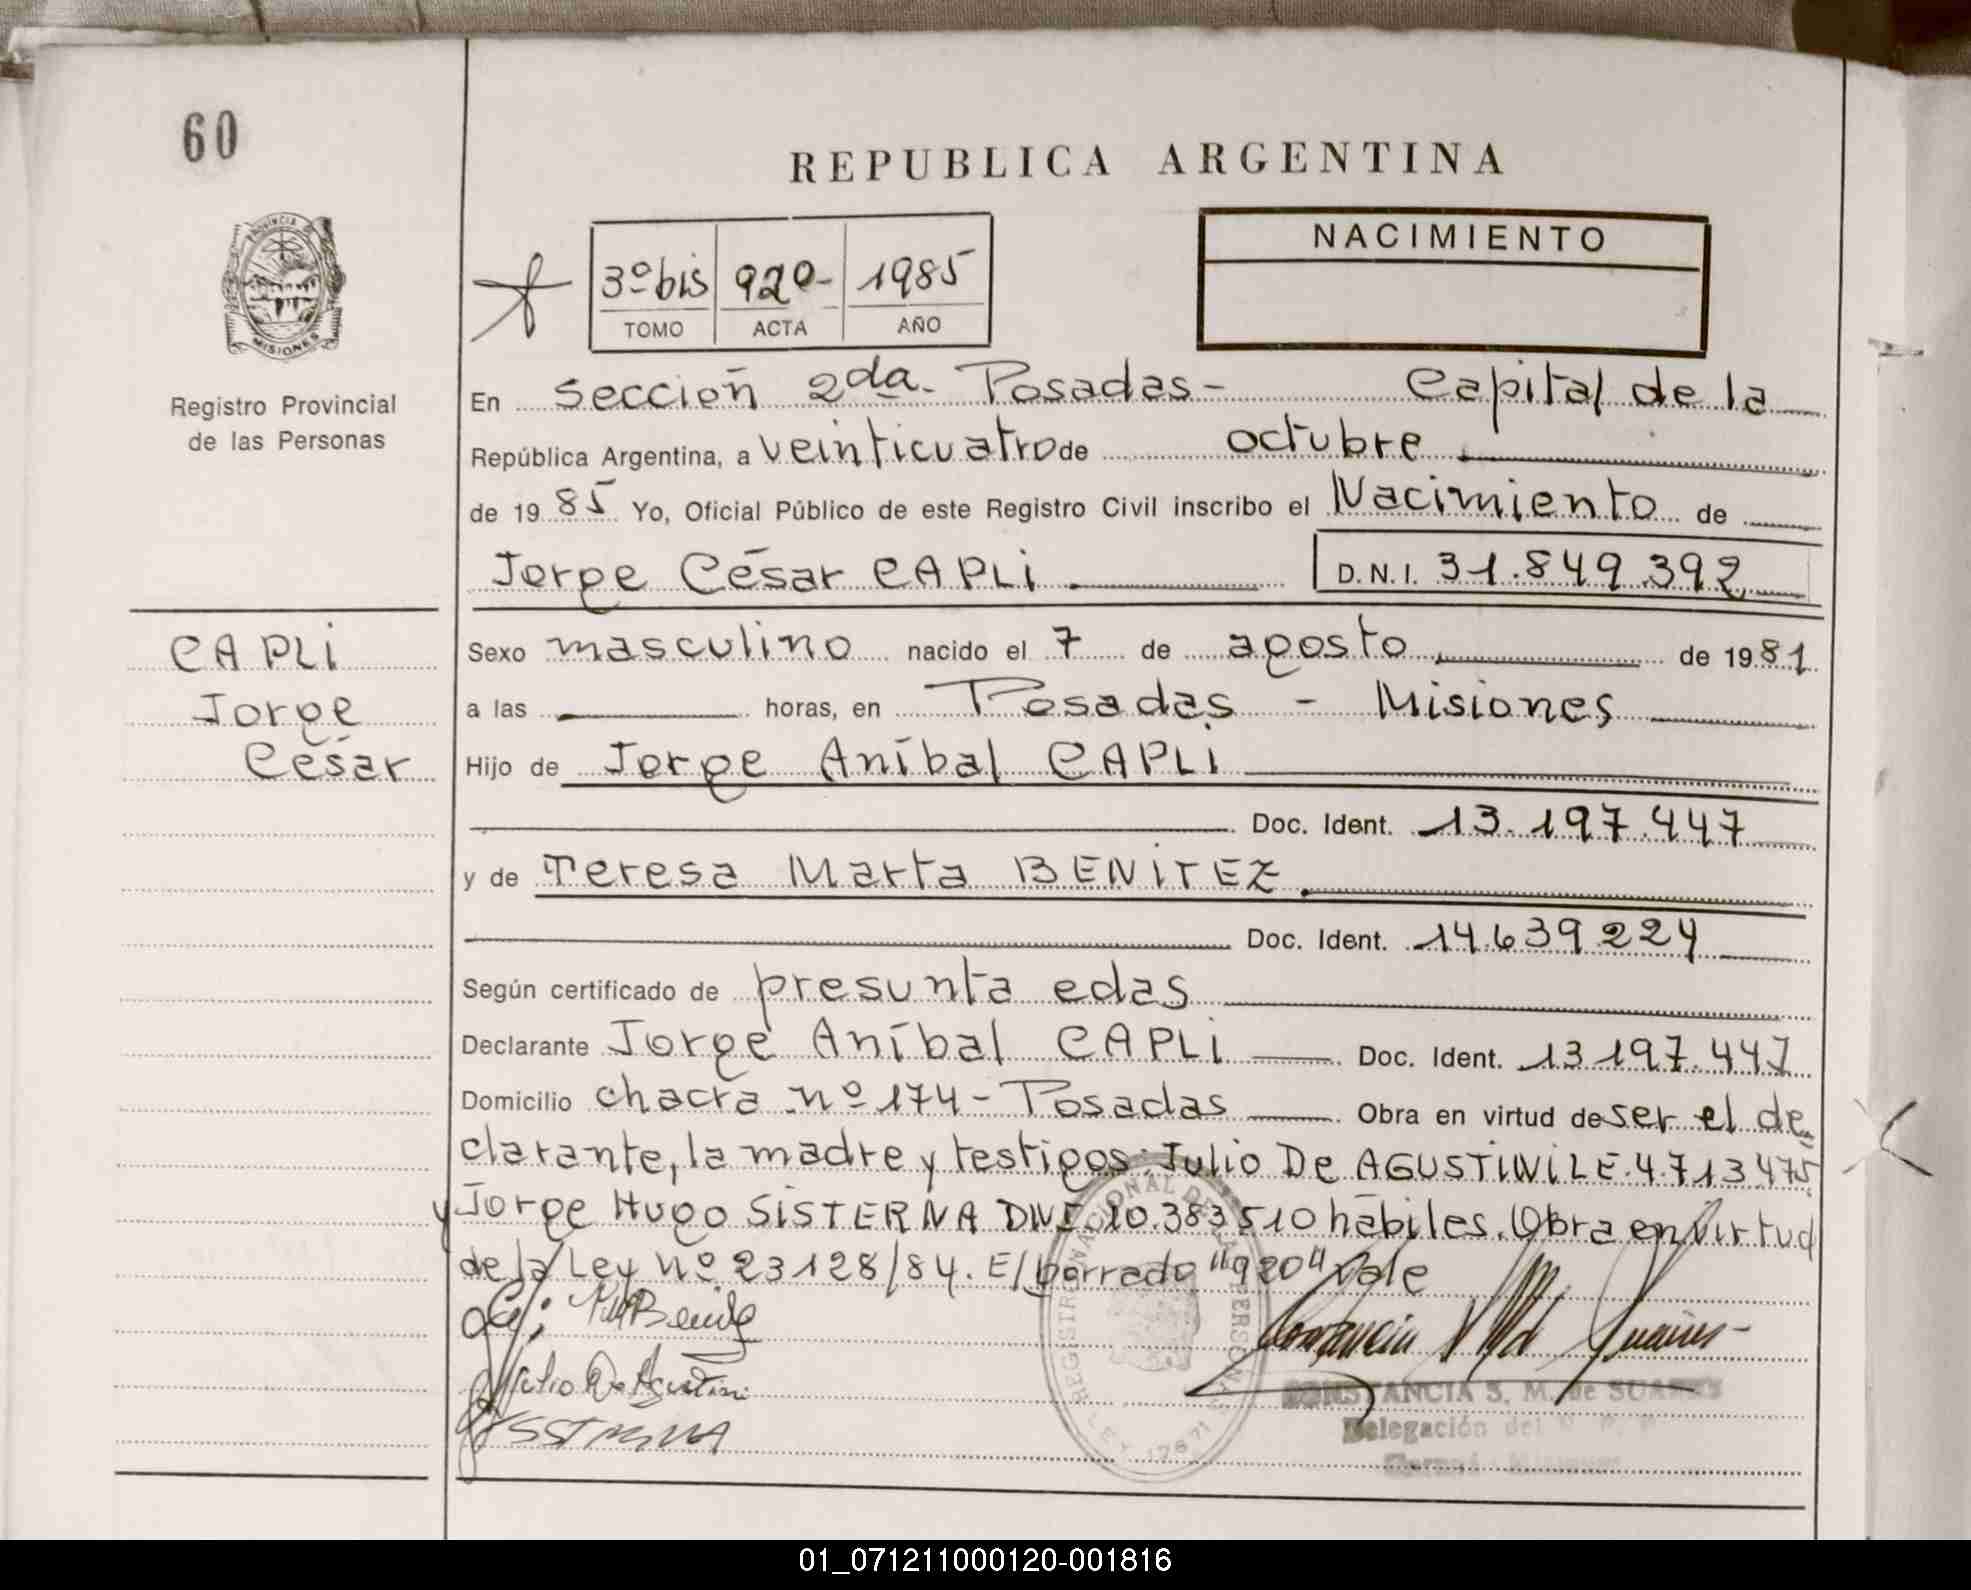 60
REPUBLICA ARGENTINA
PROVINCIA DE MISIONES
3º bis 920- 1985
TOMO ACTA AÑO
NACIMIENTO
Registro Provincial
de las Personas
En Sección 2da. Posadas- Capital de la
República Argentina, a veinticuatro de octubre
de 1985 Yo, Oficial Público de este Registro Civil inscribo el Nacimiento de
Jorge César CAPLI D.N.I. 31.849.392
CAPLI
Jorge
César
Sexo masculino nacido el 7 de agosto de 1981
a las horas, en Posadas - Misiones
Hijo de Jorge Aníbal CAPLI
Doc. Ident. 13.197.447
y de Teresa Marta BENITEZ.
Doc. Ident. 14.639.224
Según certificado de presunta edas
Declarante Jorge Aníbal CAPLI Doc. Ident. 13.197.447
Domicilio chacra nº 174 - Posadas Obra en virtud de ser el de
clarante, la madre y testigos: Julio De AGUSTINI L.E. 4.713.475
y Jorge Hugo SISTERNA DNI. 10.383.510 hábiles. Obra en virtud
de la Ley Nº 23128/84. E/ borrado "920" Vale
Julio De Agustini
REGISTRO NACIONAL DE LAS PERSONAS
LEY 17671
CONSTANCIA S. M. de SUAREZ
Delegación del
01_071211000120-001816